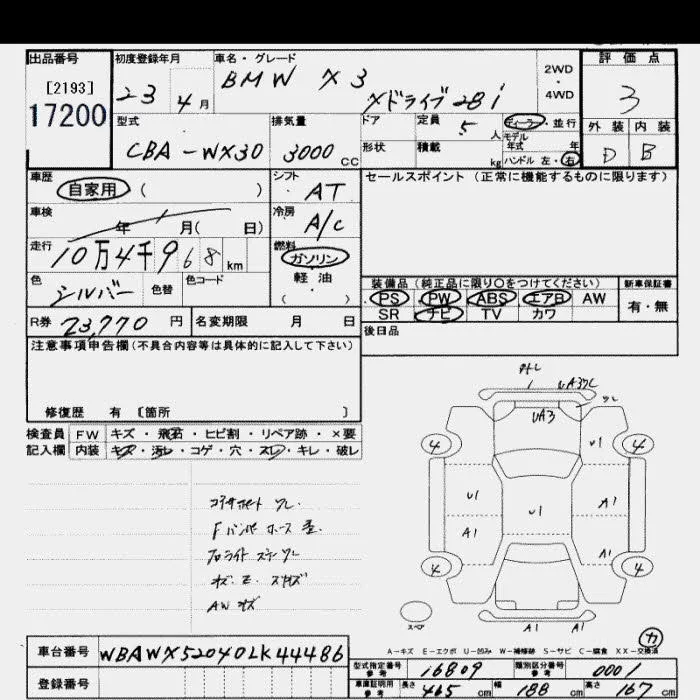 出品番号 初度登録年月 車名・グレード 2WD・4WD 評価点
[2193]
17200
23年 4月 BMW X3 Xドライブ28i 3
型式 排気量 ドア 定員 5人 ディーラー・並行 外装 内装
CBA-WX30 3000cc 形状 積載 kg モデル年式 年 ハンドル 左・右 D B
車歴 自家用 ( ) シフト AT セールスポイント(正常に機能するものに限ります)
車検 年 月( 日) 冷房 A/C
走行 10万4千968km 燃料 ガソリン
軽油
( )
色 シルバー 色替 色コード
装備品(純正品に限り○をつけてください) 新車保証書
PS PW ABS エアB AW 有・無
SR ナビ TV カワ
R券 23,770円 名変期限 月 日 後日品
注意事項申告欄(不具合内容等は具体的に記入して下さい)
修復歴 有 [箇所 ]
検査員 FW キズ・飛石・ヒビ割・リペア跡・×要
記入欄 内装 キズ・汚レ・コゲ・穴・スレ・キレ・破レ
UA3
U1
4 4
U1 U1 A1
A1 A1
4 4
A1 A1
スペア
カ
A-キズ E-エクボ U-凹み W-補修跡 S-サビ C-腐食 XX-交換済
AWキズ
車台番号 WBAWX52040LK44486
登録番号
型式指定番号 参考 16809 類別区分番号 参考 0001
車庫証明用 参考 長さ 465cm 幅 188cm 高さ 167cm